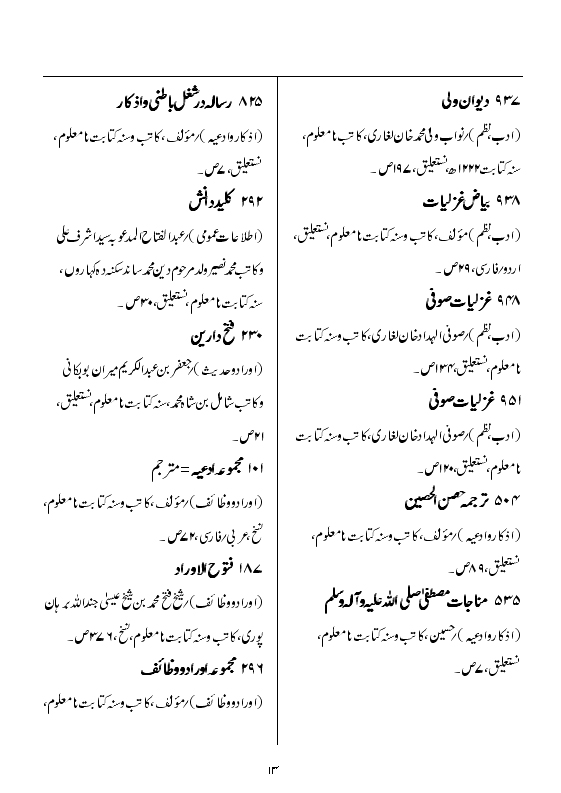 ۹۳۷ دیوان ولی
(ادب، نظم)؍نواب ولی محمد خان لغاری، کاتب نامعلوم،
سنہ کتابت ۱۲۲۲ھ، نستعلیق، ۱۹۷ص۔
۹۳۸ بیاض غزلیات
(ادب، نظم) مؤلف، کاتب وسنہ کتابت نامعلوم، نستعلیق،
اردو؍فارسی، ۲۹ص۔
۹۴۸ غزلیات صوفی
(ادب، نظم)؍صوفی الہداد خان لغاری، کاتب وسنہ کتابت
نامعلوم، نستعلیق، ۱۳۴ص۔
۹۵۱ غزلیات صوفی
(ادب، نظم)؍صوفی الہداد خان لغاری، کاتب وسنہ کتابت
نامعلوم، نستعلیق، ۱۲۰ص۔
۵۰۴ ترجمہ حصن الحصین
(اذکار وادعیہ)؍مؤلف، کاتب وسنہ کتابت نامعلوم،
نستعلیق، ۸۹ص۔
۵۳۵ مناجات مصطفیٰ صلی اللہ علیہ وآلہ وسلم
(اذکار وادعیہ)؍حسین، کاتب وسنہ کتابت نامعلوم،
نستعلیق، ۷ص۔
۸۲۵ رسالہ در شغل باطنی واذکار
(اذکار وادعیہ)؍مؤلف، کاتب وسنہ کتابت نامعلوم،
نستعلیق، ۷ص۔
۲۹۲ کلید دانش
(اطلاعات عمومی)؍عبدالفتاح المدعو بہ سید اشرف علی
وکاتب محمد نصیر ولد مرحوم دین محمد ساند سکنہ دہ کہاروں،
سنہ کتابت نامعلوم، نستعلیق، ۳۰ص۔
۲۳۰ فتح دارین
(اوراد وحدیث)؍جعفر بن عبدالکریم میران بوبکانی
وکاتب شامل بن شاہ محمد، سنہ کتابت نامعلوم، نستعلیق،
۲۱ص۔
۱۰۱ مجموعہ ادعیہ = مترجم
(اوراد ووظائف)؍مؤلف، کاتب وسنہ کتابت نامعلوم،
نسخ، عربی؍فارسی، ۷۲ص۔
۱۸۷ فتوح الاوراد
(اوراد ووظائف)؍شیخ فتح محمد بن شیخ عیسیٰ جنداللہ برہان
پوری، کاتب وسنہ کتابت نامعلوم، نسخ، ۳۷۶ص۔
۲۹۶ مجموعہ اوراد ووظائف
(اوراد ووظائف)؍مؤلف، کاتب وسنہ کتابت نامعلوم،
۱۳